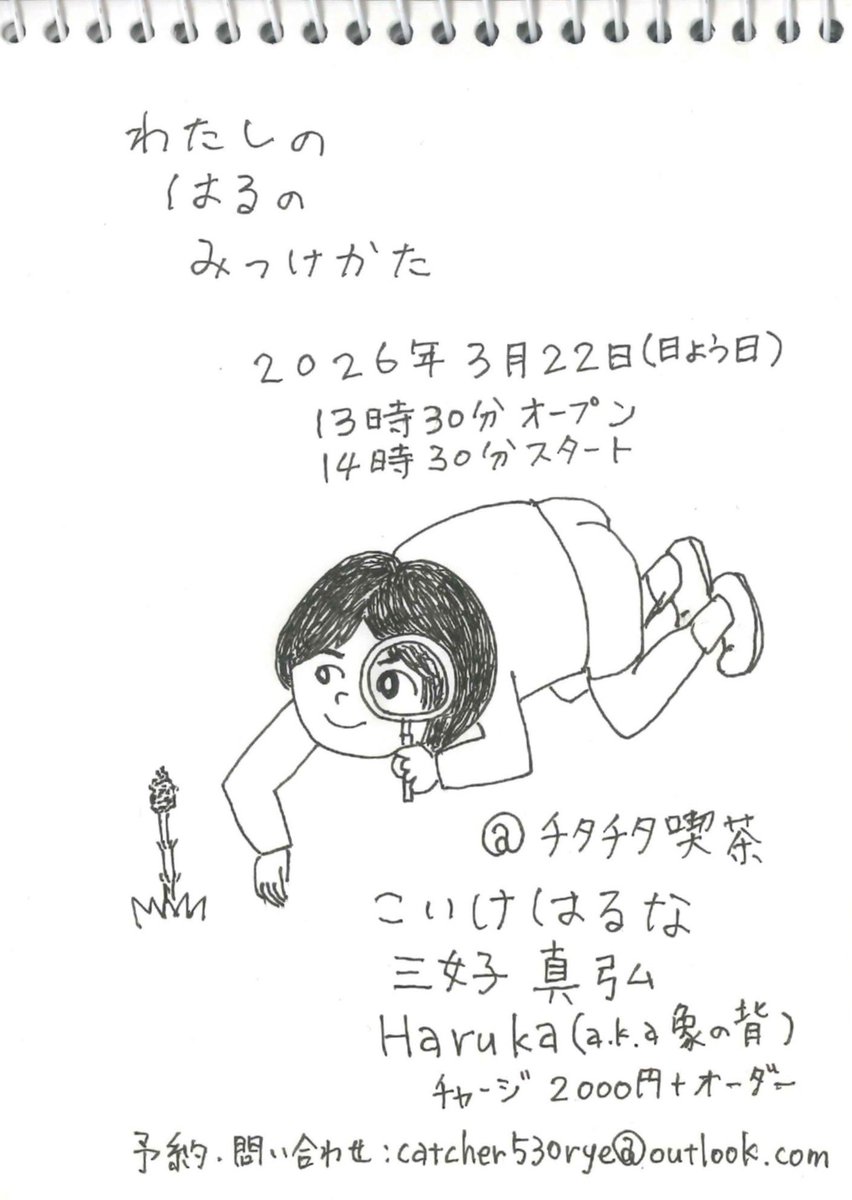 わたしの
はるの
みつけかた
2026年 3月22日(日よう日)
13時30分オープン
14時30分スタート
@チタチタ喫茶
こいけはるな
三好子 真弘
Haruka(a.k.a 象の背)
チャージ 2000円+オーダー
予約・問い合わせ:catcher530rye@outlook.com